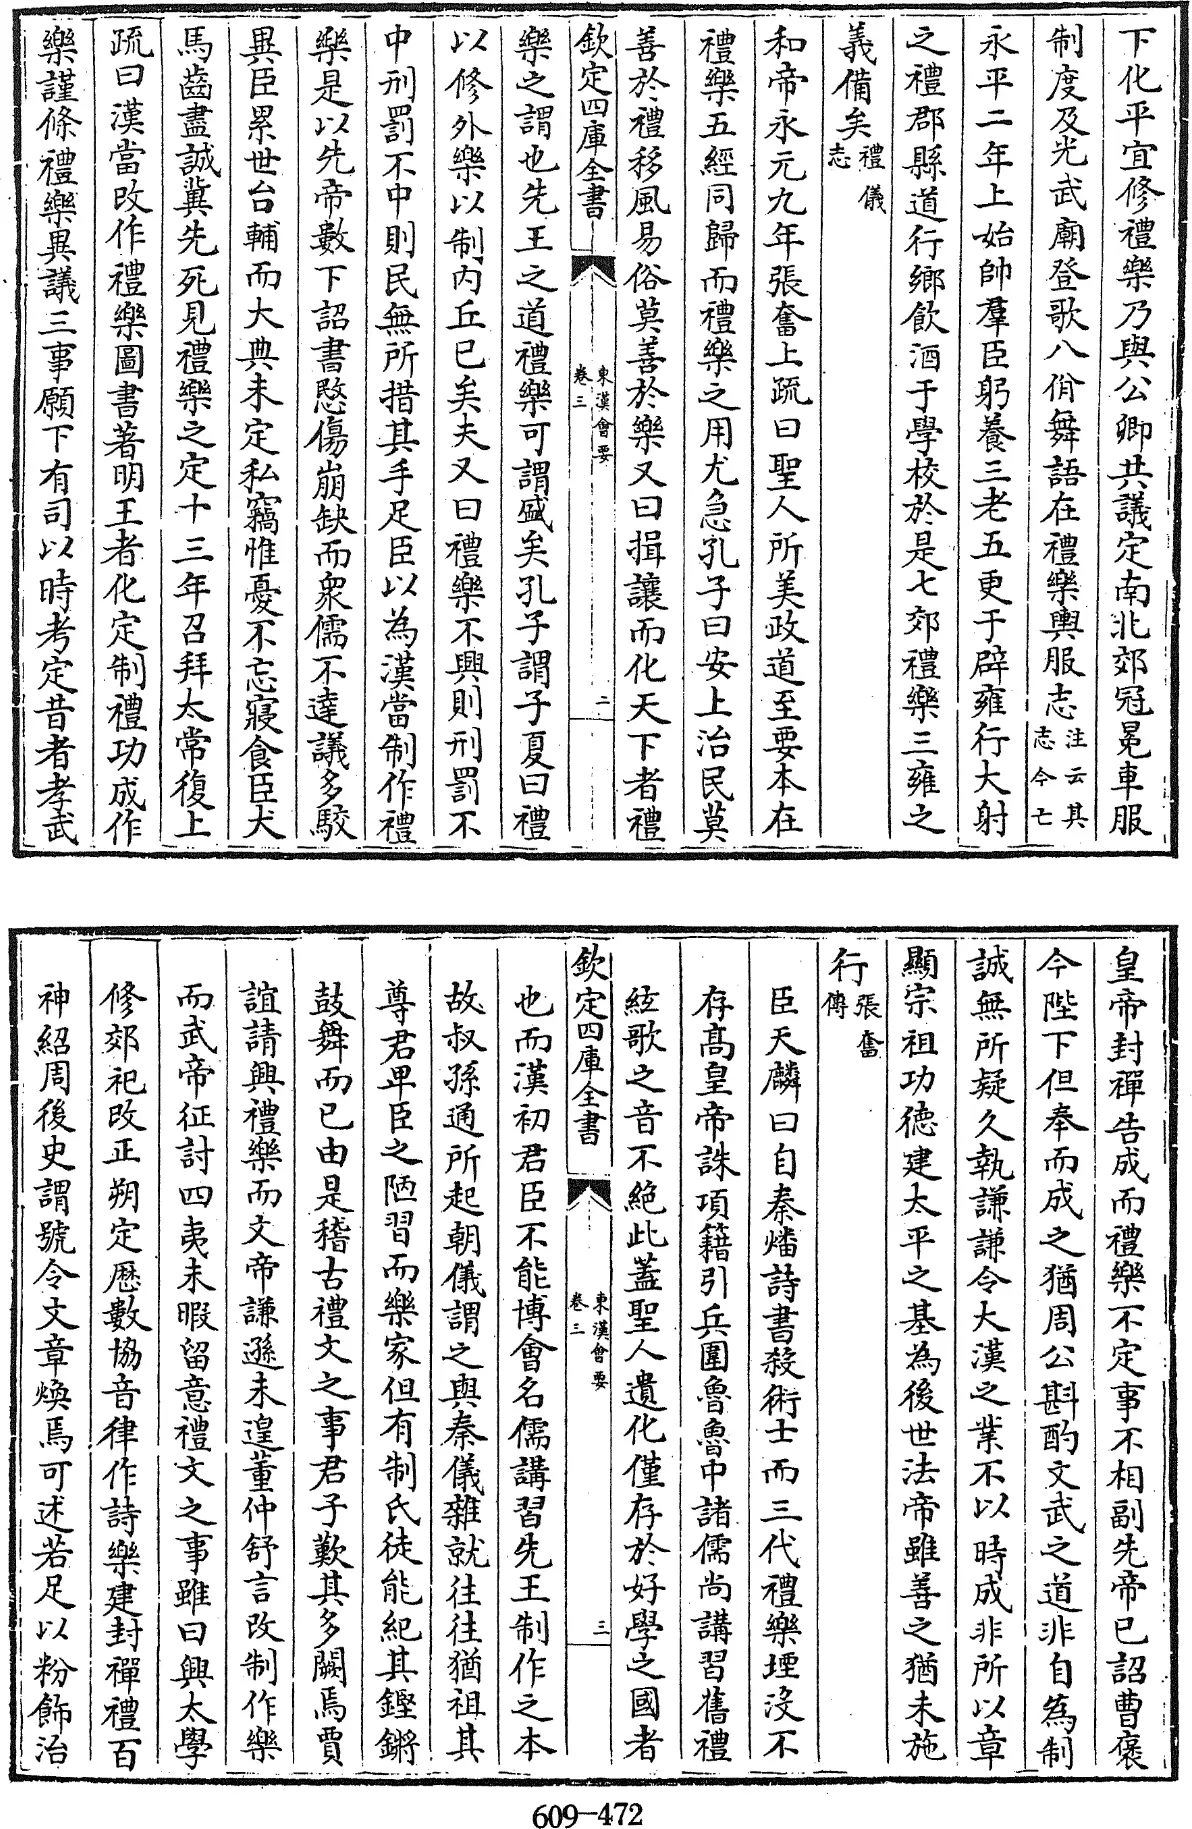 下化平宜修禮樂乃與公卿共議定南北郊冠冕車服
制度及光武廟登歌八佾舞語在禮樂輿服志注云其志今亡
永平二年上始帥羣臣躬養三老五更于辟雍行大射
之禮郡縣道行鄉飲酒于學校於是七郊禮樂三雍之
義備矣禮儀志
和帝永元九年張奮上疏曰聖人所美政道至要本在
禮樂五經同歸而禮樂之用尤急孔子曰安上治民莫
善於禮移風易俗莫善於樂又曰揖讓而化天下者禮
欽定四庫全書
東漢會要
卷三
二
樂之謂也先王之道禮樂可謂盛矣孔子謂子夏曰禮
以修外樂以制內丘已矣夫又曰禮樂不興則刑罰不
中刑罰不中則民無所措其手足臣以為漢當制作禮
樂是以先帝數下詔書愍傷崩缺而衆儒不達議多駮
異臣累世台輔而大典未定私竊惟憂不忘寢食臣犬
馬齒盡誠冀先死見禮樂之定十三年召拜太常復上
疏曰漢當改作禮樂圖書著明王者化定制禮功成作
樂謹條禮樂異議三事願下有司以時考定昔者孝武
皇帝封禪告成而禮樂不定事不相副先帝已詔曹褒
今陛下但奉而成之猶周公斟酌文武之道非自為制
誠無所疑久執謙謙令大漢之業不以時成非所以章
顯宗祖功德建太平之基為後世法帝雖善之猶未施
行張奮傳
臣天麟曰自秦燔詩書殺術士而三代禮樂堙沒不
存高皇帝誅項籍引兵圍魯魯中諸儒尚講習舊禮
絃歌之音不絕此蓋聖人遺化僅存於好學之國者
欽定四庫全書
東漢會要
卷三
三
也而漢初君臣不能博會名儒講習先王制作之本
故叔孫通所起朝儀謂之與秦儀雜就往往猶祖其
尊君卑臣之陋習而樂家但有制氏徒能紀其鏗鏘
鼓舞而已由是稽古禮文之事君子歎其多闕焉賈
誼請興禮樂而文帝謙遜未遑董仲舒言改制作樂
而武帝征討四夷未暇留意禮文之事雖曰興太學
修郊祀改正朔定歷數協音律作詩樂建封禪禮百
神紹周後史謂號令文章煥焉可述若足以粉飾治
609-472